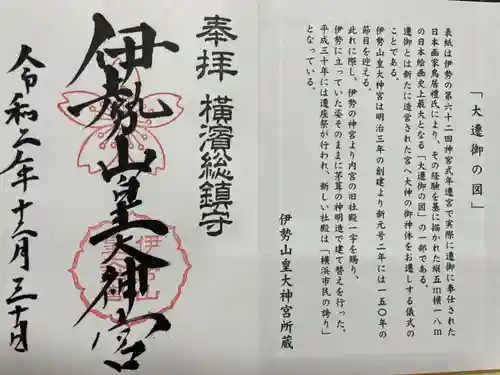 「大遷御の図」
表紙は伊勢の第六十二回神宮式年遷宮で実際に遷御に奉仕された
日本画家鳥居禮氏により、その経験を基に描かれた縦五m横一八m
の日本絵画史上最大となる「大遷御の図」の一部である。
遷御とは新たに造営された宮へ大神の御神体をお遷しする儀式の
ことである。
伊勢山皇大神宮は明治三年の創建より新元号二年には一五〇年の
節目を迎える。
此れに際し、伊勢の神宮より内宮の旧社殿一宇を賜り、
伊勢に立っていた姿そのままに茅葺の神明造で建て替えを行った。
平成三十年には遷座祭が行われ、新しい社殿は「横浜市民の誇り」
となっている。
伊勢山皇大神宮所蔵
奉拝
横濱総鎮守
伊勢山皇大神宮
令和二年十二月三十日